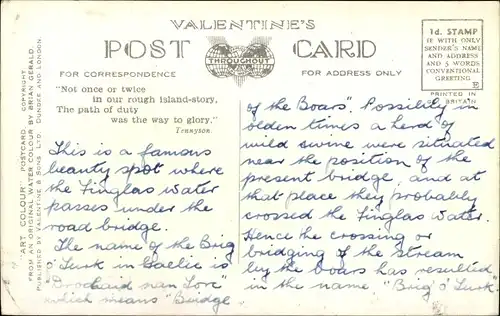 VALENTINE'S
POST CARD
THROUGHOUT
FOR CORRESPONDENCE
FOR ADDRESS ONLY
1d. STAMP
IF WITH ONLY
SENDER'S NAME
AND ADDRESS
AND 5 WORDS
CONVENTIONAL
GREETING
E
PRINTED IN
GT. BRITAIN
"ART COLOUR" POSTCARD. COPYRIGHT.
FROM AN ORIGINAL WATER COLOUR BY BRIAN GERALD.
PUBLISHED BY VALENTINE & SONS LTD. DUNDEE AND LONDON.
"Not once or twice
in our rough island-story,
The path of duty
was the way to glory."
Tennyson.
This is a famous
beauty spot where
the Finglas Water
passes under the
road bridge.
The name of the Brig
o' Turk in Gaelic is
"Drochaid nan Torc"
which means "Bridge
of the Boars". Possibly in
olden times a herd of
wild swine were situated
near the position of the
present bridge, and at
that place they probably
crossed the Finglas Water.
Hence the crossing or
bridging of the stream
by the boars has resulted
in the name "Brig o' Turk".